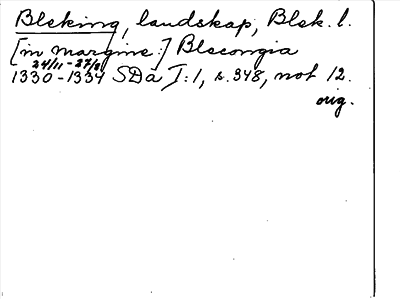 Bleking, landskap, Blek. l.
[in margine:] Blecongia
24/11 - 27/8
1330-1334 SDa I:1, s. 348, not 12.
orig.